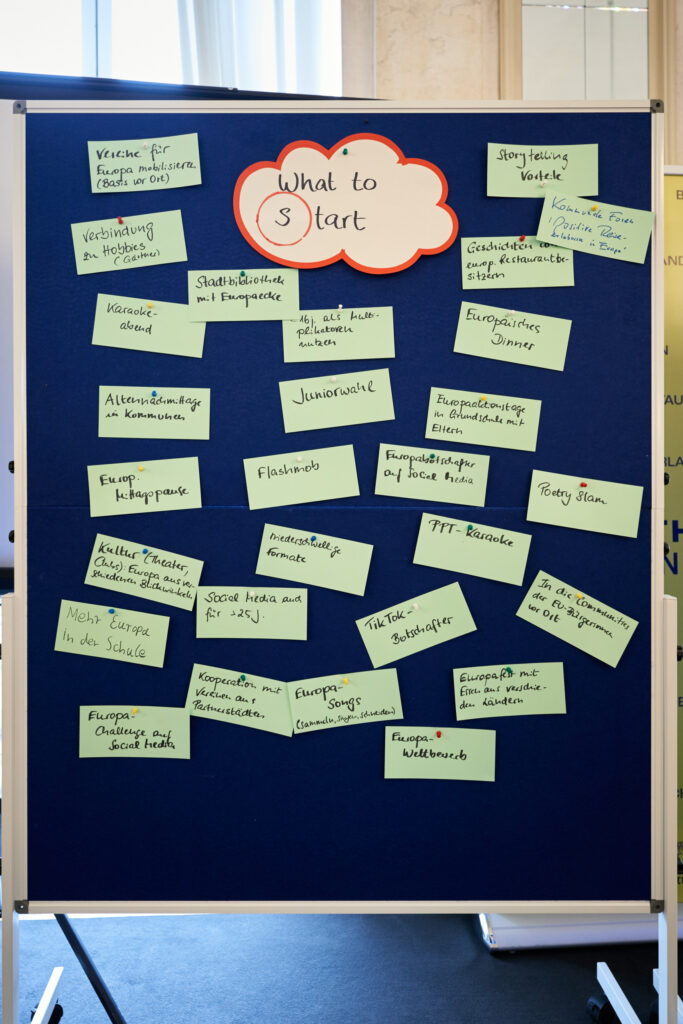 What to
Start
Vereine für
Europa mobilisieren
(Basis vor Ort)
Storytelling
Vorteile
Kommunale Foren
"Positive Reise-
in Europa"
Verbindung
zu Hobbies
(Gärtner)
Geschichten
europ. Restaurantbe-
sitzern
Stadtbibliothek
mit Europaecke
Karaoke-
abend
16j. als Multi-
plikatoren
nutzen
Europäisches
Dinner
Juniorwahl
Altennachmittage
in Kommunen
Europaaktionstage
in Grundschule mit
Eltern
Europ.
Mittagspause
Flashmob
Europabotschafter
auf Social Media
Poetry Slam
Niederschwellige
Formate
PPT-Karaoke
Kultur (Theater,
Clubs): Europa aus ver-
schiedenen Blickwinkeln
Social Media auf
für >25J.
TikTok-
Botschafter
In die Communities
der EU-Bürgerinnen
vor Ort
Mehr Europa
in der Schule
Kooperation mit
Vereinen aus
Partnerstädten
Europa-
Songs
(sammeln, singen, schneiden)
Europafest mit
Essen aus verschie-
den Ländern
Europa-
Challenge auf
Social Media
Europa-
Wettbewerb